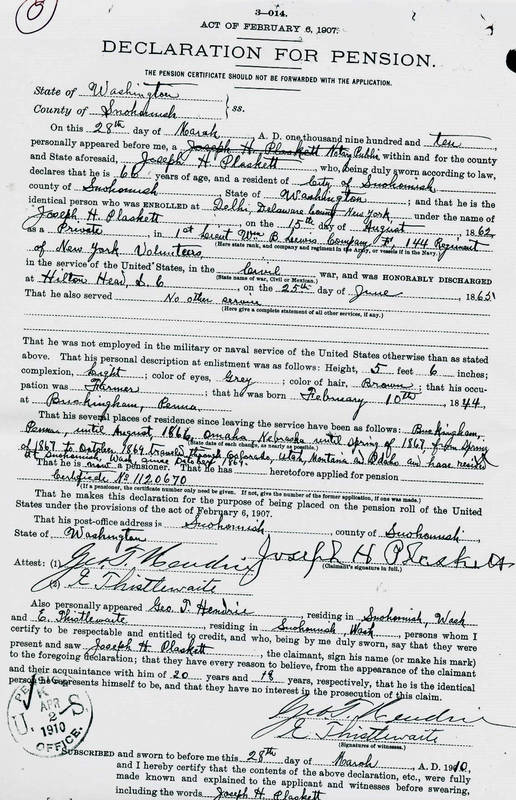 3—014.
ACT OF FEBRUARY 6, 1907.
DECLARATION FOR PENSION.
THE PENSION CERTIFICATE SHOULD NOT BE FORWARDED WITH THE APPLICATION.
State of Washington
County of Snohomish } ss.
On this 28th day of March, A. D. one thousand nine hundred and ten
personally appeared before me, a Joseph H. Plaskett Notary Public within and for the county
and State aforesaid, Joseph H Plaskett, who, being duly sworn according to law,
declares that he is 66 years of age, and a resident of City of Snohomish
county of Snohomish, State of Washington; and that he is the
identical person who was ENROLLED at Delhi, Delaware County New York, under the name of
Joseph H. Plaskett, on the 15th day of August, 1862,
as a Private, in 1st Lieut Wm B Company F, 144 Regiment
(Here state rank, and company and regiment in the Army, or vessels if in the Navy.)
of New York Volunteers
in the service of the United States, in the Civil war, and was HONORABLY DISCHARGED
(State name of war, Civil or Mexican.)
at Hilton Head, S. C, on the 25th day of June, 1865
That he also served No other service
(Here give a complete statement of all other services, if any.)
That he was not employed in the military or naval service of the United States otherwise than as stated
above. That his personal description at enlistment was as follows: Height, 5 feet 6 inches;
complexion, Light; color of eyes, Grey; color of hair, Brown; that his occu-
pation was Farmer; that he was born February 10th, 1844,
at Buckingham, Penna.
That his several places of residence since leaving the service have been as follows: Buckingham,
Penna, until August, 1866, Omaha, Nebraska until Spring of 1867, from Spring
(State date of each change, as nearly as possible.)
of 1867 to October 1869 traveled through Colorado, Utah, Montana and Idaho and have resided
at Snohomish, Wash since October 1869.
That he is now a pensioner. That he has heretofore applied for pension
Certificate No 1120670
(If a pensioner, the certificate number only need be given. If not, give the number of the former application, if one was made.)
That he makes this declaration for the purpose of being placed on the pension roll of the United
States under the provisions of the act of February 6, 1907.
That his post-office address is Snohomish, county of Snohomish,
State of Washington
Joseph H Plaskett
(Claimant's signature in full.)
Attest: (1) Geo T Hendrie
(2) E Thistlewaite
Also personally appeared Geo. T Hendrie, residing in Snohomish, Wash
and E. Thistlewaite, residing in Snohomish, Wash, persons whom I
certify to be respectable and entitled to credit, and who, being by me duly sworn, say that they were
present and saw Joseph H. Plaskett, the claimant, sign his name (or make his mark)
to the foregoing declaration; that they have every reason to believe, from the appearance of the claimant
and their acquaintance with him of 20 years and 18 years, respectively, that he is the identical
person he represents himself to be, and that they have no interest in the prosecution of this claim.
Geo T Hendrie
E Thistlewaite
(Signatures of witnesses.)
U. S. PENSION OFFICE.
APR 2 1910
SUBSCRIBED and sworn to before me this 28th day of March, A. D. 1910,
and I hereby certify that the contents of the above declaration, etc., were fully
made known and explained to the applicant and witnesses before swearing,
including the words Joseph H. Plaskett